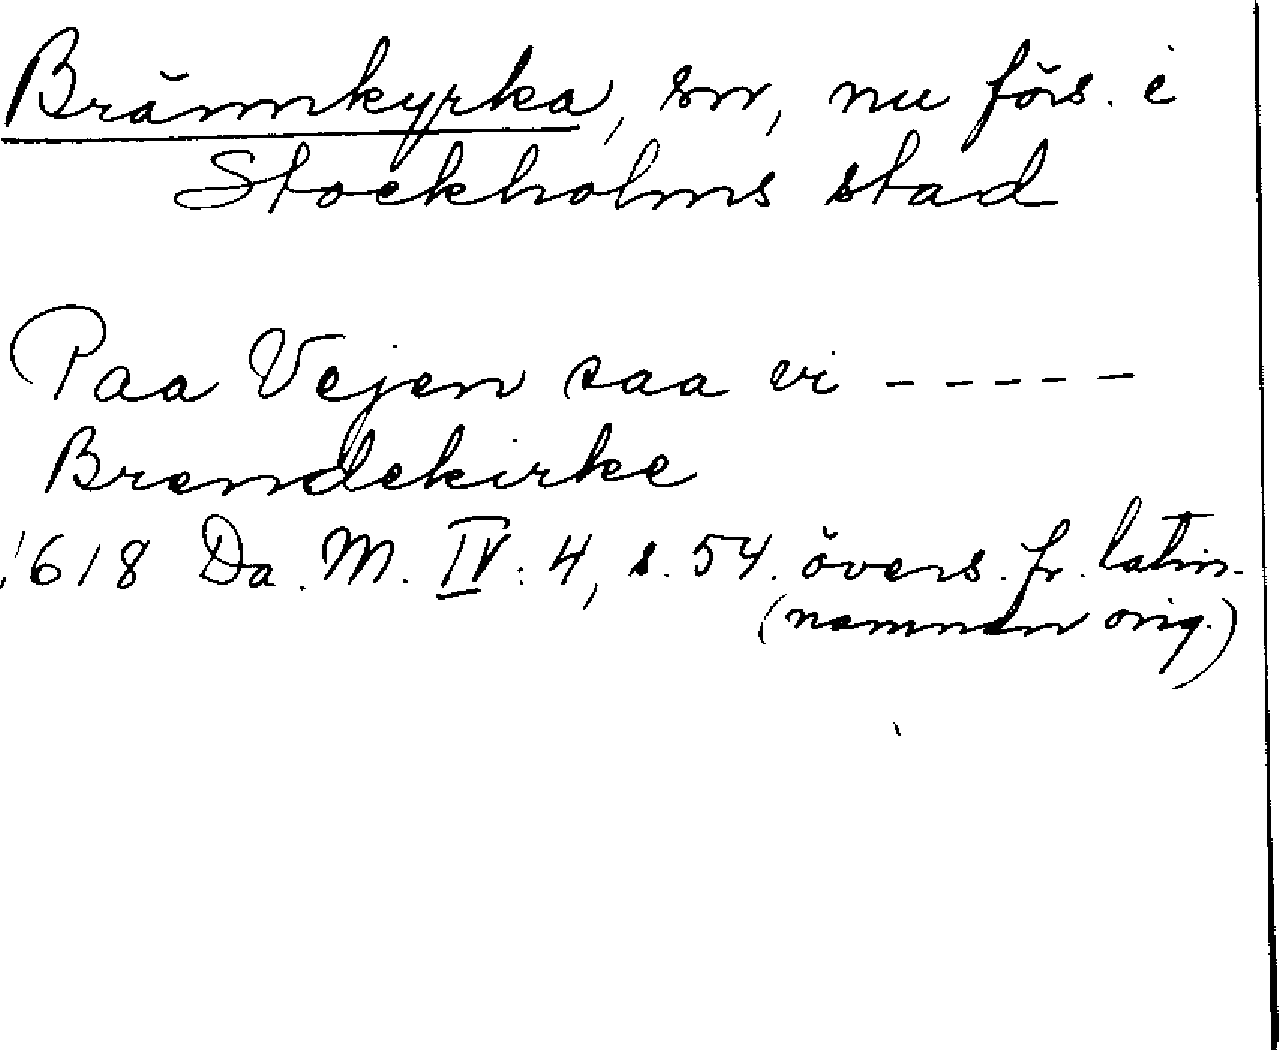 Brännkyrka, sn, nu förs. i
Stockholms stad
Paa Vejen saa vi -----
Brendekirke
1618 Da. M. IV: 4, s. 54. övers. fr. latin.
(namnen orig.)